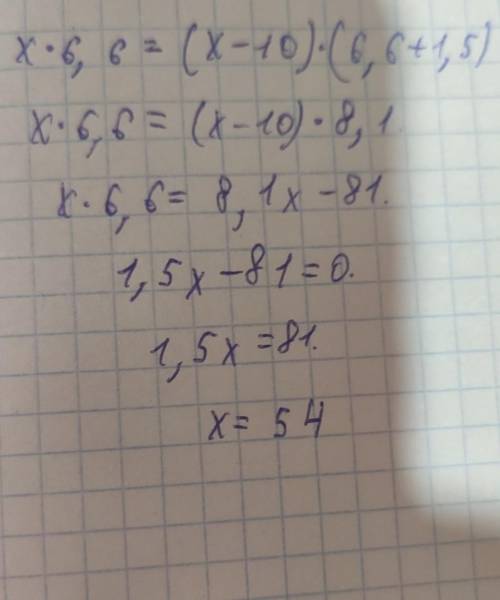 x·6,6 = (x-10)·(6,6+1,5)
x·6,6 = (x-10)·8,1.
x·6,6 = 8,1x-81.
1,5x-81=0.
1,5x=81.
x= 54